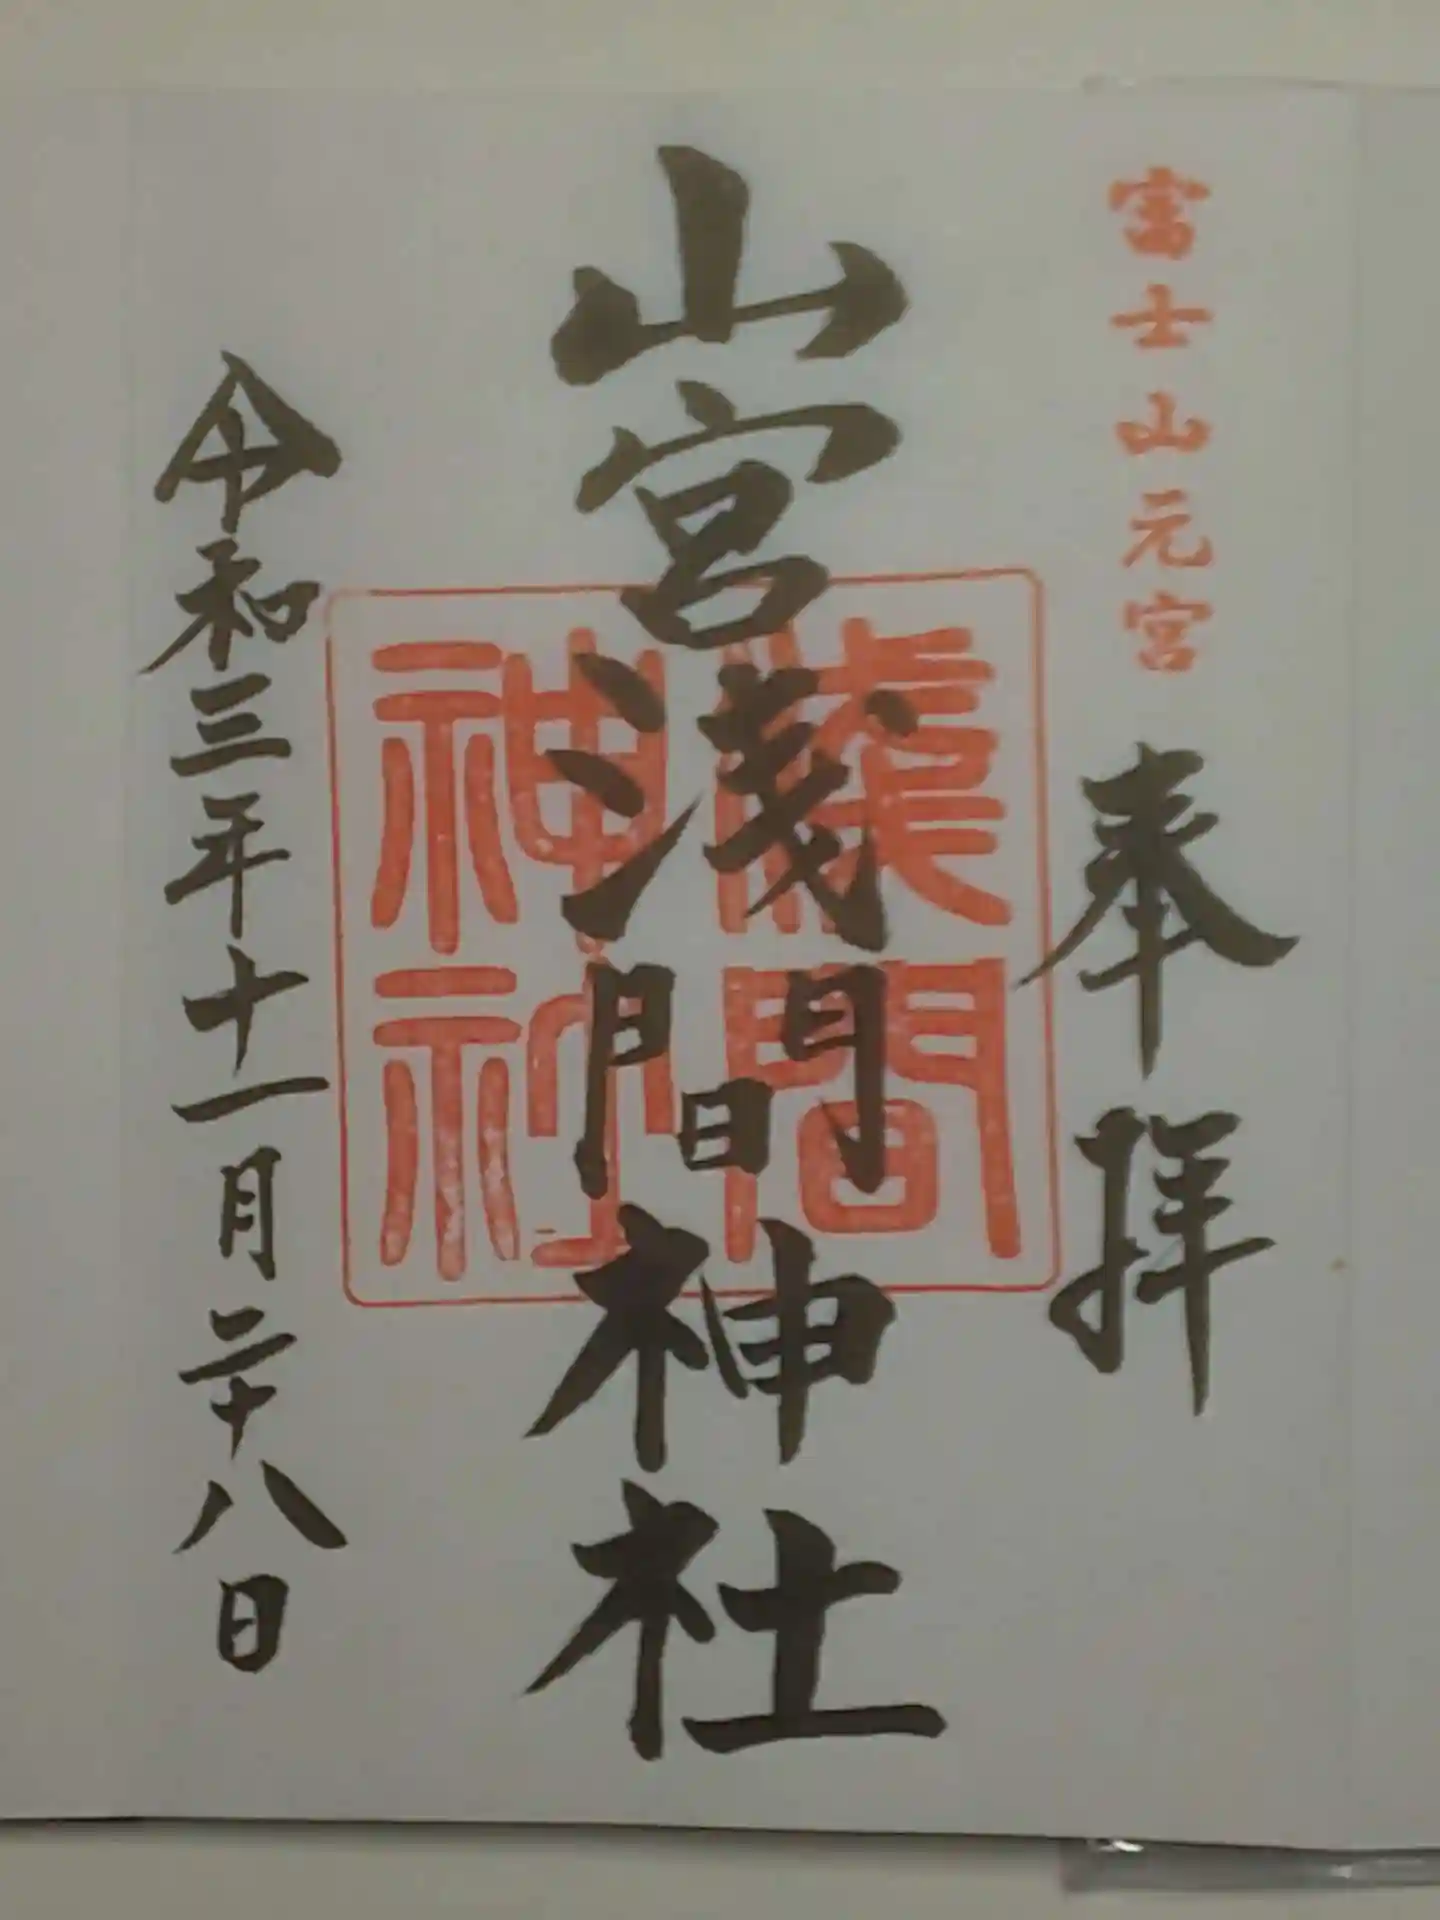 富士山元宮
奉拝
山宮浅間神社
淺間
神社
令和三年十一月二十八日